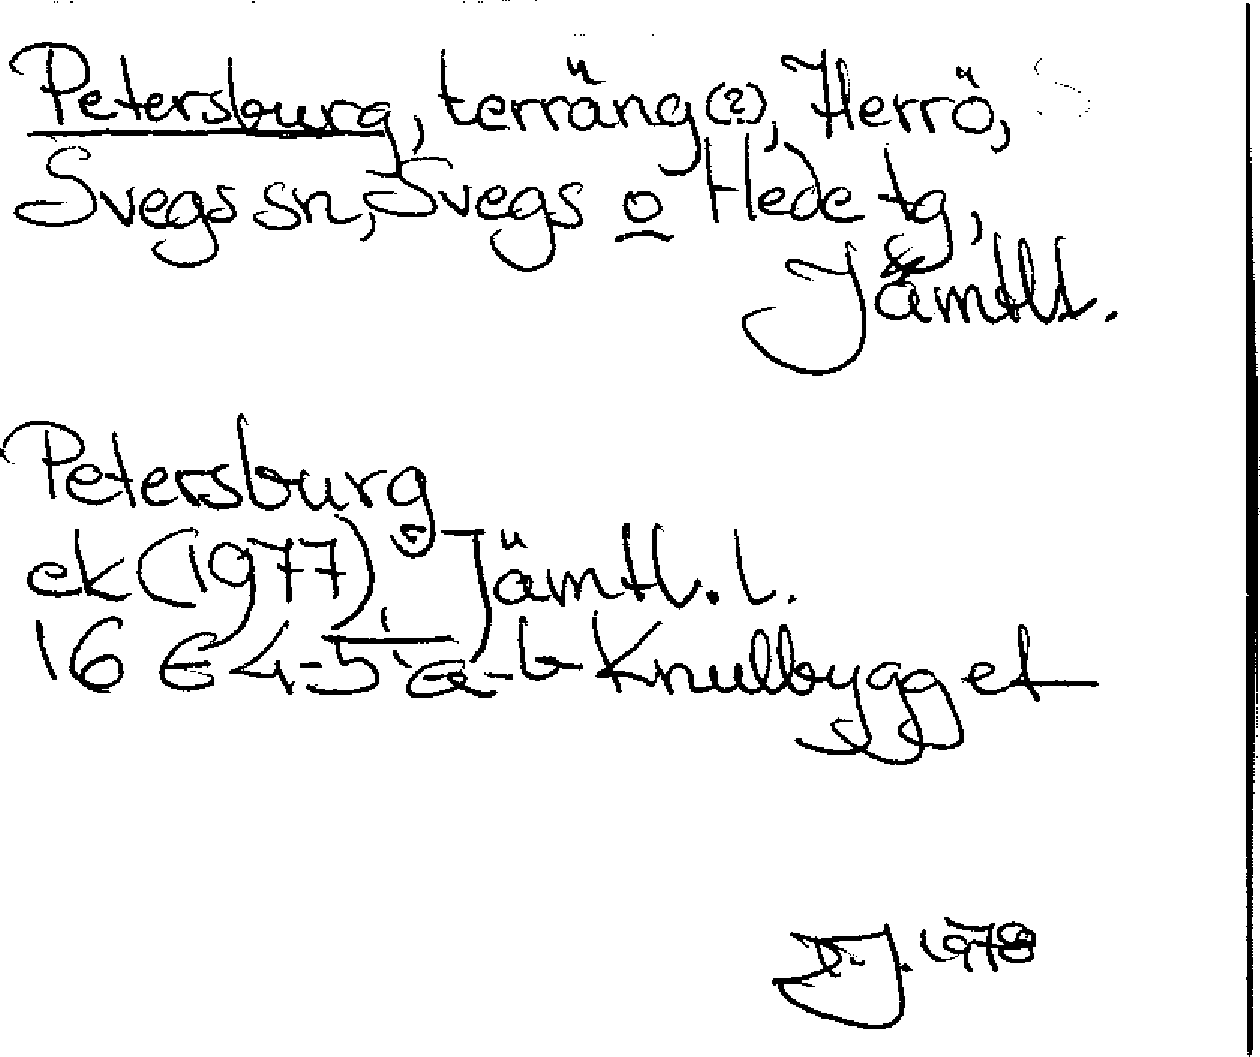 Petersburg, terräng (?), Herrö,
Svegs sn, Svegs o Hede tg,
Jämtl.
Petersburg
ek (1977) Jämtl. l.
16 E 4-5 a-b Knullbygget
1978